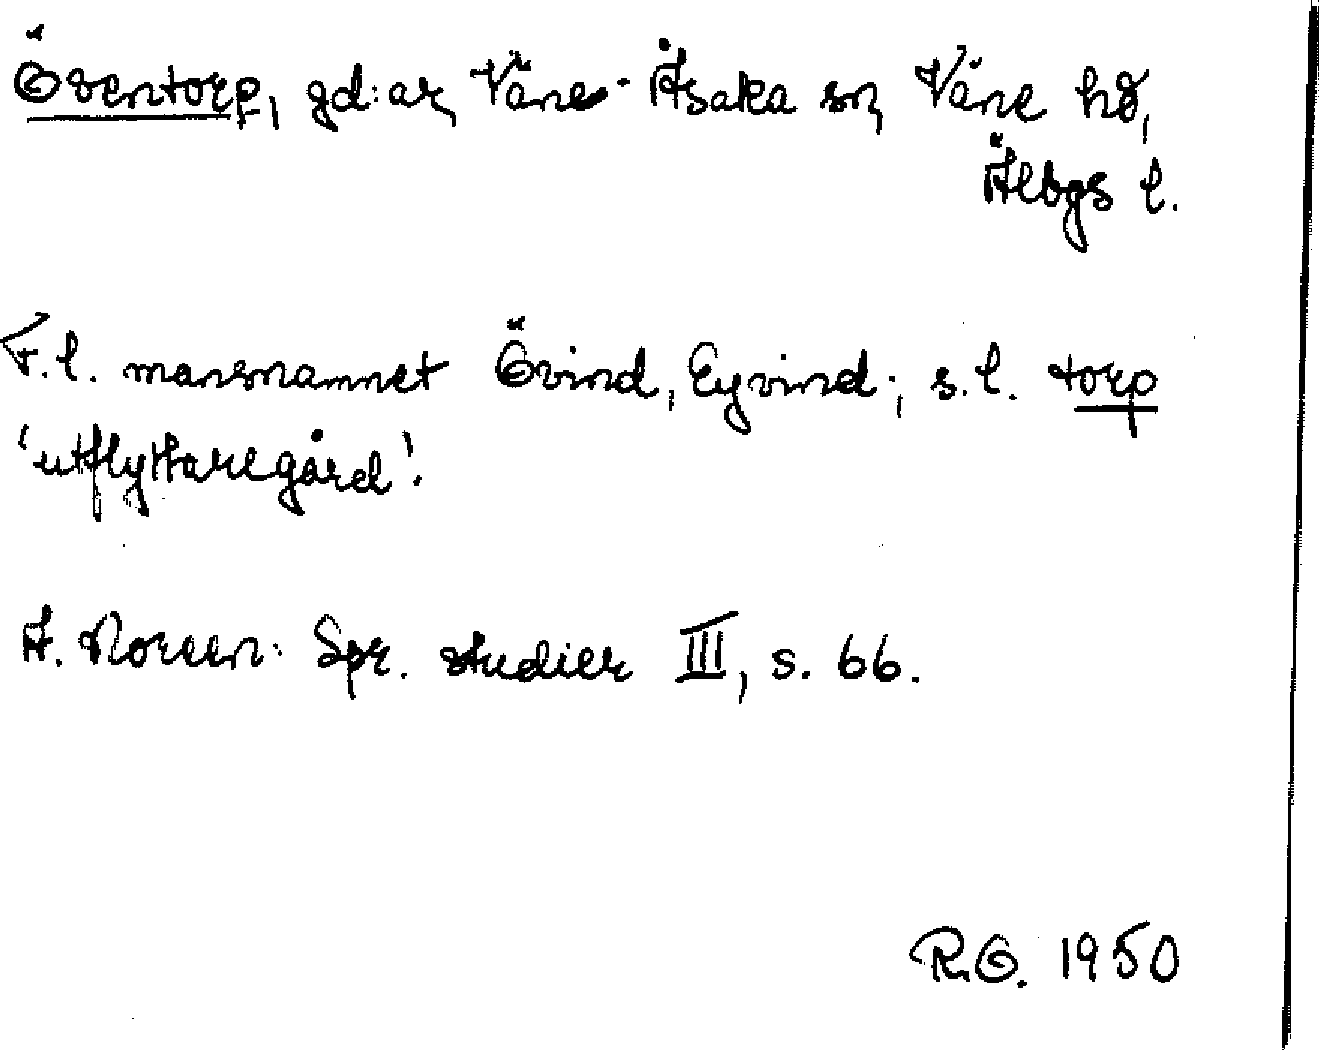 Öventorp, gd:ar, Väne-Åsaka sn, Väne hd,
Älvbgs l.
F.l. mansnamnet Övind, Eyvind; s.l. torp
'utflyttaregård'.
A. Noreen: Spr. studier III, s. 66.
R.O. 1950